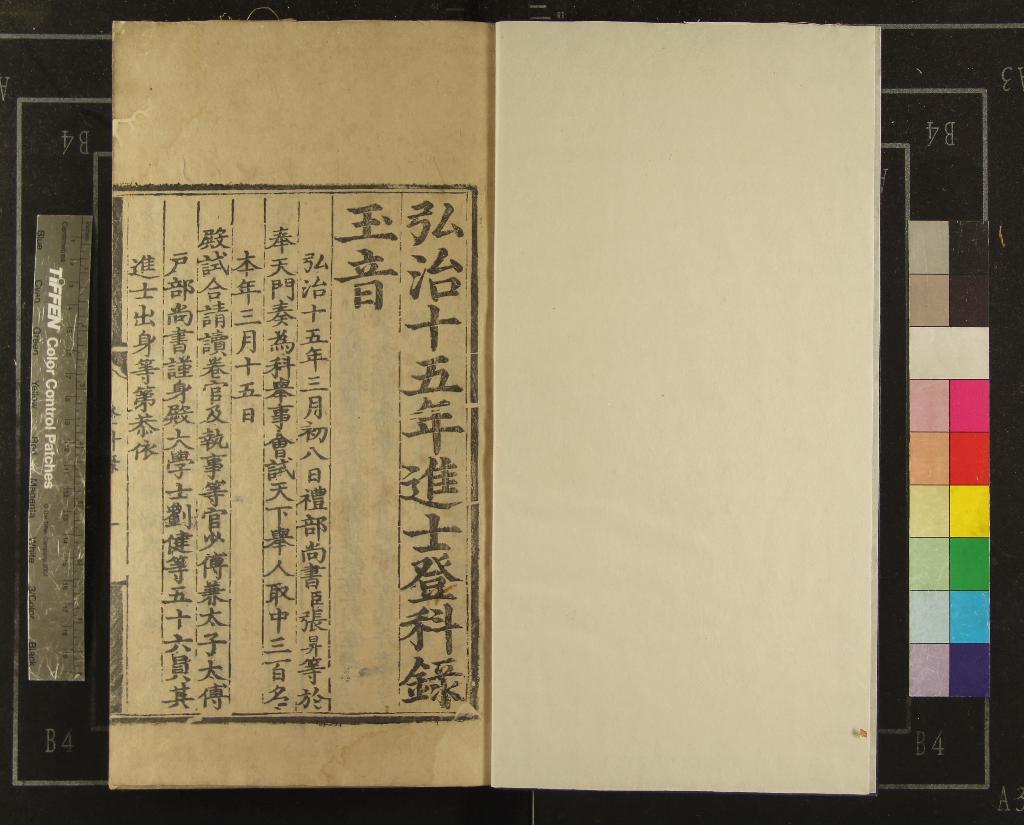 弘治十五年進士登科錄
玉音
弘治十五年三月初八日禮部尚書臣張昇等於
奉天門奏為科舉事會試天下舉人取中三百名
本年三月十五日
殿試合請讀卷官及執事等官少傅兼太子太傅
戶部尚書謹身殿大學士劉健等五十六員其
進士出身等第恭依
TIFFEN Color Control Patches
B4
B4
B4
B4
A3
A3